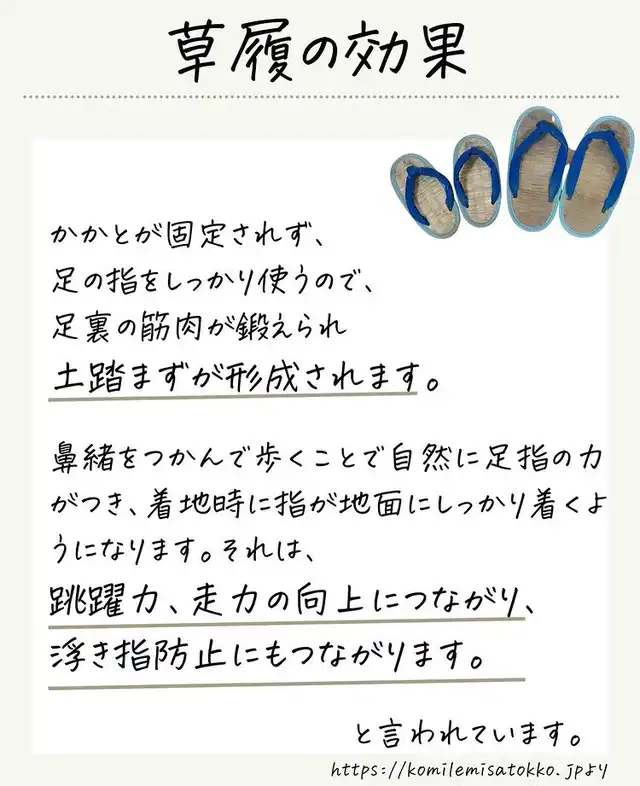 草履の効果
かかとが固定されず、
足の指をしっかり使うので、
足裏の筋肉が鍛えられ
土踏まずが形成されます。
鼻緒をつかんで歩くことで自然に足指の力
がつき、着地時に指が地面にしっかり着くよ
うになります。それは、
跳躍力、走力の向上につながり、
浮き指防止にもつながります。
と言われています。
https://komilemisatokko.jpより